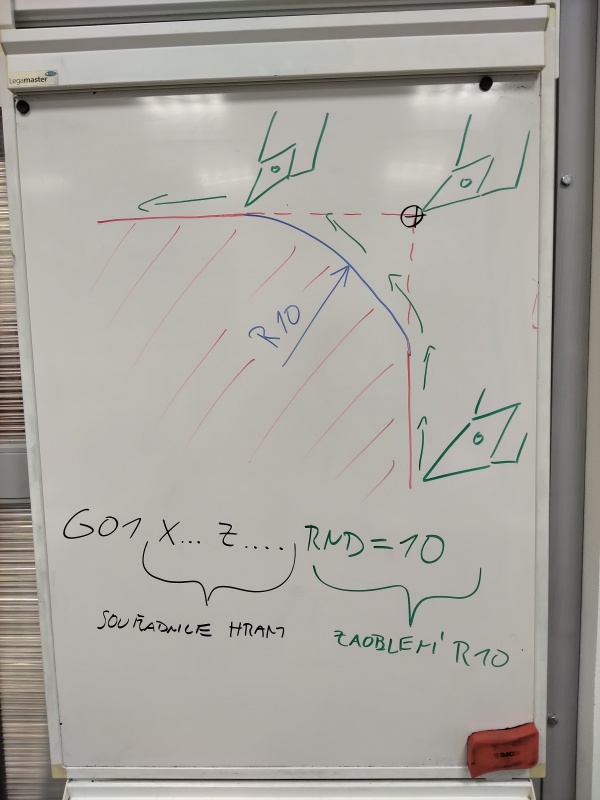 Legamaster
R10
G01 X... Z.... RND=10
SOUŘADNICE HRAN
ZAOBLENÍ R10